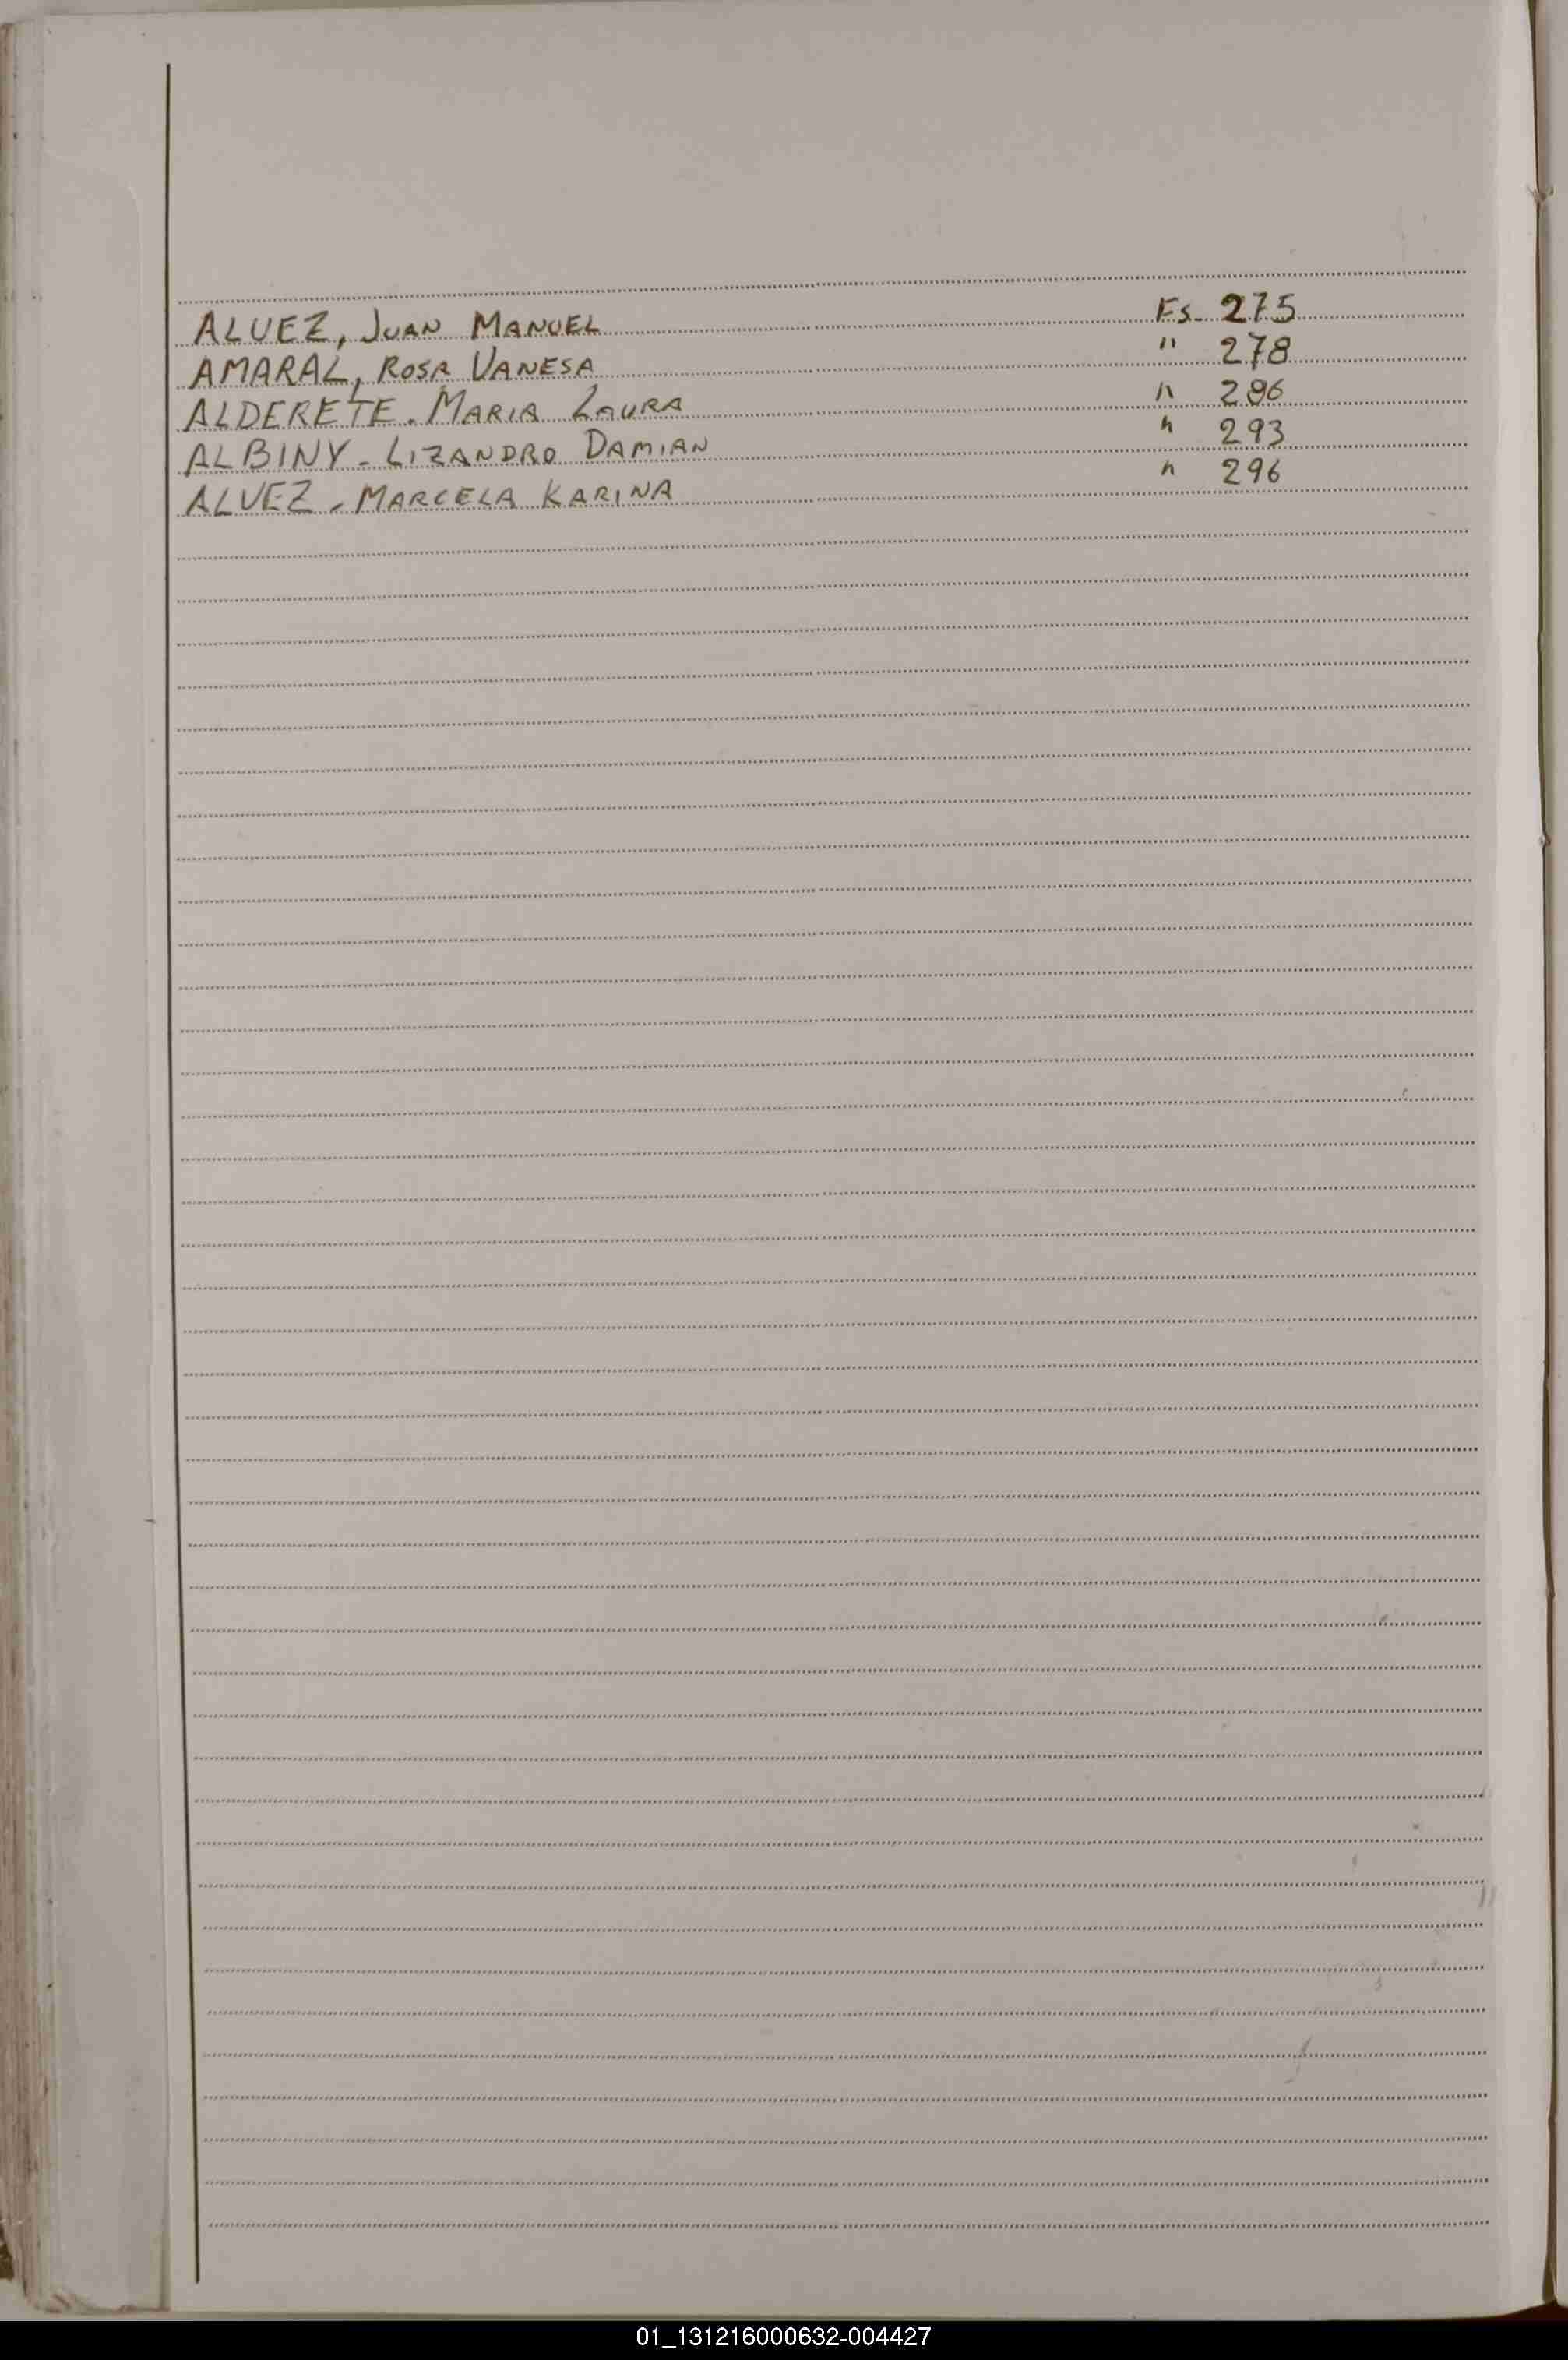 ALVEZ, JUAN MANUEL Fs. 275
AMARAL, ROSA VANESA " 278
ALDERETE. MARIA LAURA " 286
ALBINY - LIZANDRO DAMIAN " 293
ALVEZ - MARCELA KARINA " 296
01_131216000632-004427